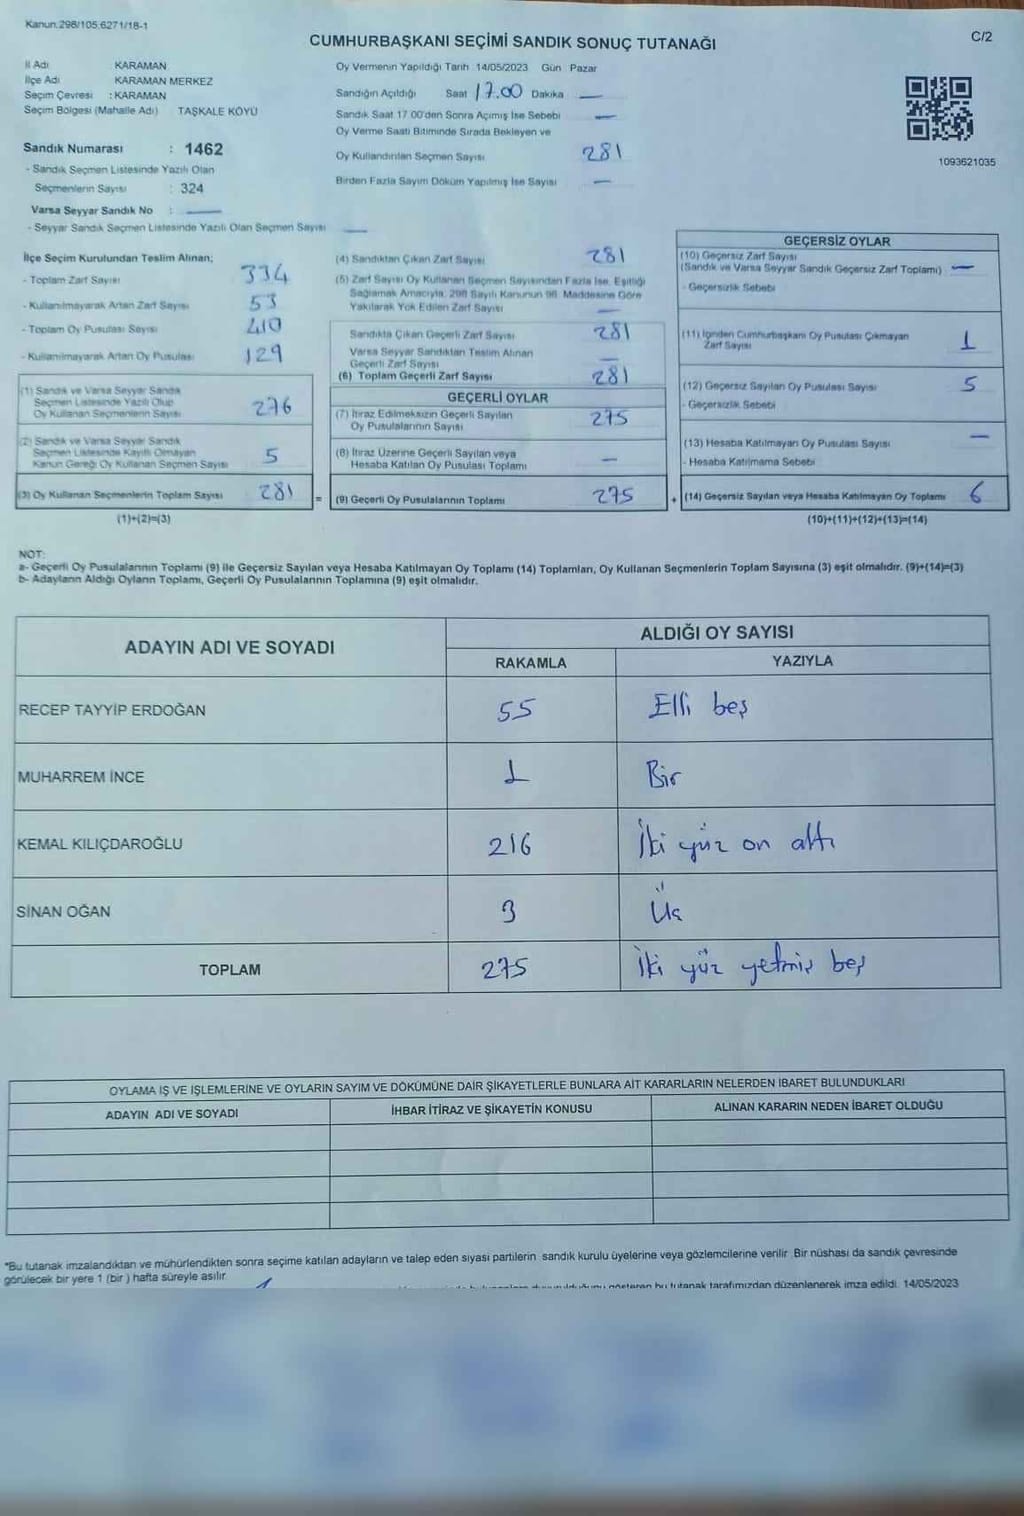 Kanun.298/105,6271/18-1
C/2
CUMHURBAŞKANI SEÇİMİ SANDIK SONUÇ TUTANAĞI
İl Adı KARAMAN
İlçe Adı KARAMAN MERKEZ
Seçim Çevresi : KARAMAN
Seçim Bölgesi (Mahalle Adı) TAŞKALE KÖYÜ
Sandık Numarası : 1462
- Sandık Seçmen Listesinde Yazılı Olan
Seçmenlerin Sayısı : 324
Varsa Seyyar Sandık No : —
- Seyyar Sandık Seçmen Listesinde Yazılı Olan Seçmen Sayısı —
Oy Vermenin Yapıldığı Tarih 14/05/2023 Gün Pazar
Sandığın Açıldığı Saat 17.00 Dakika —
Sandık Saat 17.00'den Sonra Açımış İse Sebebi —
Oy Verme Saati Bitiminde Sırada Bekleyen ve
Oy Kullandırılan Seçmen Sayısı 281
Birden Fazla Sayım Döküm Yapılmış İse Sayısı —
1093621035
İlçe Seçim Kurulundan Teslim Alınan;
- Toplam Zarf Sayısı 334
- Kullanılmayarak Artan Zarf Sayısı 53
- Toplam Oy Pusulası Sayısı 410
- Kullanılmayarak Artan Oy Pusulası 129
(1) Sandık ve Varsa Seyyar Sandık
Seçmen Listesinde Yazılı Olup
Oy Kullanan Seçmenlerin Sayısı 276
(2) Sandık ve Varsa Seyyar Sandık
Seçmen Listesinde Kayıtlı Olmayan
Kanun Gereği Oy Kullanan Seçmen Sayısı 5
(3) Oy Kullanan Seçmenlerin Toplam Sayısı 281 =
(1)+(2)=(3)
(4) Sandıktan Çıkan Zarf Sayısı 281
(5) Zarf Sayısı Oy Kullanan Seçmen Sayısından Fazla İse, Eşitliği
Sağlamak Amacıyla, 298 Sayılı Kanunun 98. Maddesine Göre
Yakılarak Yok Edilen Zarf Sayısı —
Sandıkta Çıkan Geçerli Zarf Sayısı 281
Varsa Seyyar Sandıktan Teslim Alınan
Geçerli Zarf Sayısı —
(6) Toplam Geçerli Zarf Sayısı 281
GEÇERLİ OYLAR
(7) İtiraz Edilmeksizin Geçerli Sayılan
Oy Pusulalarının Sayısı 275
(8) İtiraz Üzerine Geçerli Sayılan veya
Hesaba Katılan Oy Pusulası Toplamı —
(9) Geçerli Oy Pusulalarının Toplamı 275 +
GEÇERSİZ OYLAR
(10) Geçersiz Zarf Sayısı
(Sandık ve Varsa Seyyar Sandık Geçersiz Zarf Toplamı) —
- Geçersizlik Sebebi
(11) İçinden Cumhurbaşkanı Oy Pusulası Çıkmayan
Zarf Sayısı 1
(12) Geçersiz Sayılan Oy Pusulası Sayısı 5
- Geçersizlik Sebebi
(13) Hesaba Katılmayan Oy Pusulası Sayısı —
- Hesaba Katılmama Sebebi
(14) Geçersiz Sayılan veya Hesaba Katılmayan Oy Toplamı 6
(10)+(11)+(12)+(13)=(14)
NOT:
a- Geçerli Oy Pusulalarının Toplamı (9) ile Geçersiz Sayılan veya Hesaba Katılmayan Oy Toplamı (14) Toplamları, Oy Kullanan Seçmenlerin Toplam Sayısına (3) eşit olmalıdır. (9)+(14)=(3)
b- Adayların Aldığı Oyların Toplamı, Geçerli Oy Pusulalarının Toplamına (9) eşit olmalıdır.
ADAYIN ADI VE SOYADI ALDIĞI OY SAYISI
RAKAMLA YAZIYLA
RECEP TAYYİP ERDOĞAN 55 Elli beş
MUHARREM İNCE 1 Bir
KEMAL KILIÇDAROĞLU 216 İki yüz on altı
SİNAN OĞAN 3 Üç
TOPLAM 275 İki yüz yetmiş beş
OYLAMA İŞ VE İŞLEMLERİNE VE OYLARIN SAYIM VE DÖKÜMÜNE DAİR ŞİKAYETLERLE BUNLARA AİT KARARLARIN NELERDEN İBARET BULUNDUKLARI
ADAYIN ADI VE SOYADI İHBAR İTİRAZ VE ŞİKAYETİN KONUSU ALINAN KARARIN NEDEN İBARET OLDUĞU
*Bu tutanak imzalandıktan ve mühürlendikten sonra seçime katılan adayların ve talep eden siyasi partilerin sandık kurulu üyelerine veya gözlemcilerine verilir. Bir nüshası da sandık çevresinde
görülecek bir yere 1 (bir ) hafta süreyle asılır.
gösteren bu tutanak tarafımızdan düzenlenerek imza edildi. 14/05/2023